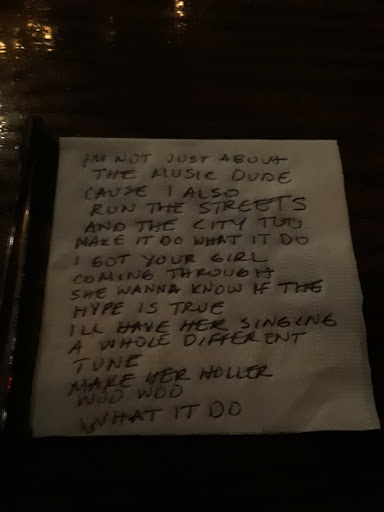 IM NOT JUST ABOUT
THE MUSIC DUDE
CAUSE I ALSO
RUN THE STREETS
AND THE CITY TOO
MAKE IT DO WHAT IT DO
I GOT YOUR GIRL
COMING THROUGH
SHE WANNA KNOW IF THE
HYPE IS TRUE
ILL HAVE HER SINGING
A WHOLE DIFFERENT
TUNE
MAKE HER HOLLER
WOO WOO
WHAT IT DO